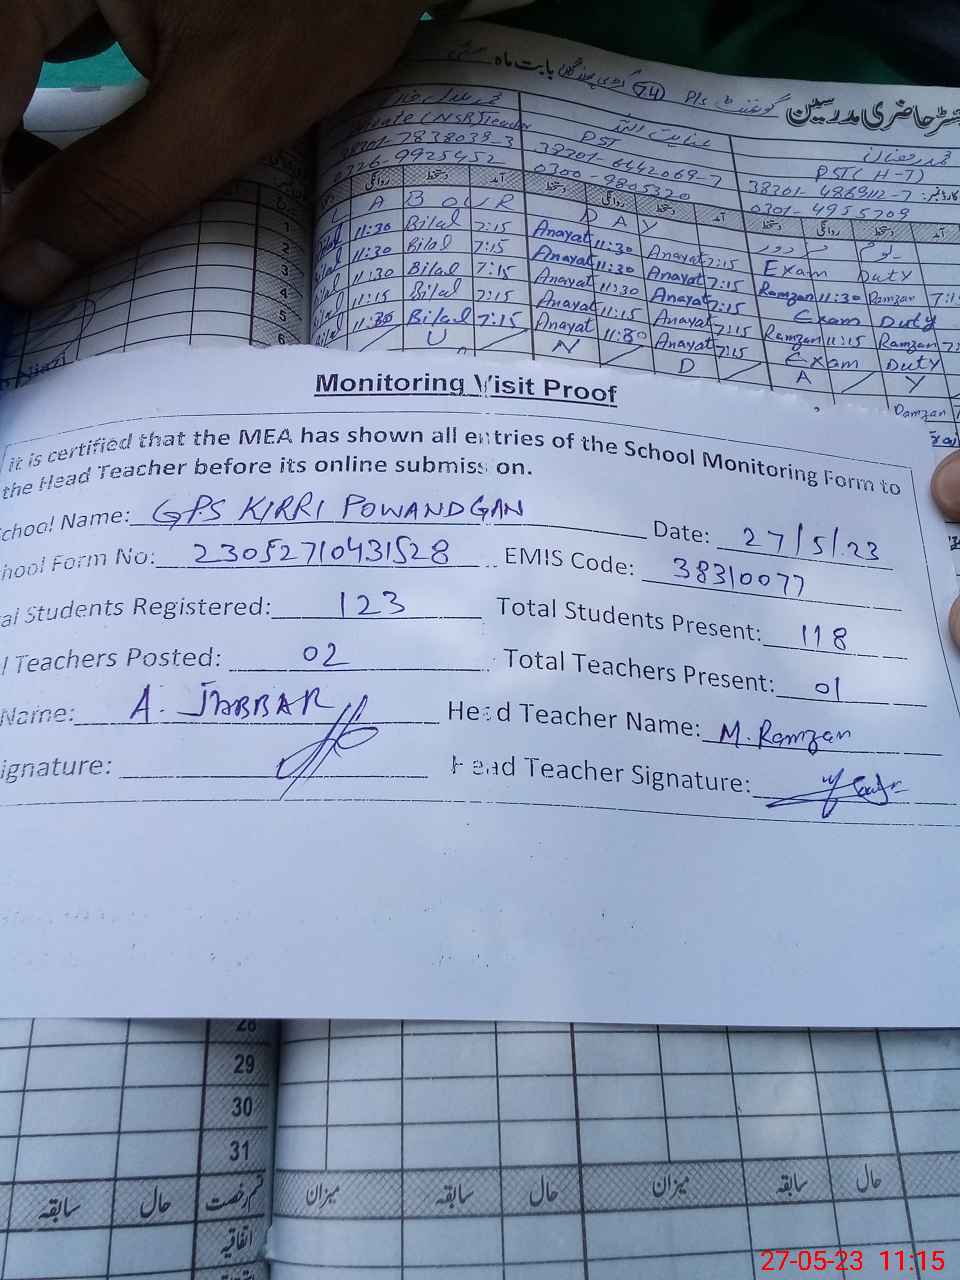 رجسٹر حاضری مدرسین گورنمنٹ P/S 74 بابت ماہ مئی
(NSB)Teacher PST PST( H-T)
38201-7838039-3 38201-6442069-7 38201-4869112-7
0726-9925452 0300-9805320 0301-4955709
روانگی دستخط آمد دستخط روانگی دستخط آمد دستخط روانگی دستخط آمد
1 L A B O U R D A Y
2 11:30 Bilal 7:15 Anayat 11:30 Anayat 7:15 Exam Duty
3 11:30 Bilal 7:15 Anayat 11:30 Anayat 7:15 Ramzan 11:30 Ramzan
4 11:30 Bilal 7:15 Anayat 11:30 Anayat 7:15 Exam Duty
5 11:15 Bilal 7:15 Anayat 11:15 Anayat 7:15 Ramzan 11:15 Ramzan
6 11:30 Bilal 7:15 Anayat 11:30 Anayat 7:15 Exam Duty
U N D A Y
Ramzan
Monitoring Visit Proof
it is certified that the MEA has shown all entries of the School Monitoring Form to
the Head Teacher before its online submission.
chool Name: GPS KIRRI POWANDGAN Date: 27/5/23
hool Form No: 23052710431528 EMIS Code: 38310077
al Students Registered: 123 Total Students Present: 118
l Teachers Posted: 02 Total Teachers Present: 01
Name: A. JABBAR Head Teacher Name: M. Ramzan
ignature: Head Teacher Signature:
28
29
30
31
سابقہ حال قسم رخصت میزان سابقہ حال میزان سابقہ حال
اتفاقیہ
27-05-23 11:15